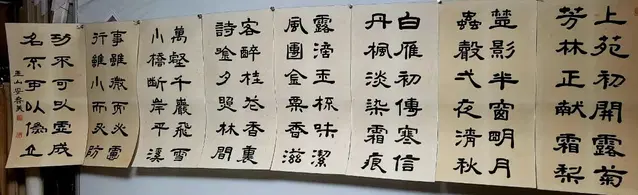 上苑初開露菊
芳林正献霜梨
影半窗明月
蟲聲弌夜清秋
白雁初傳寒信
丹楓淡染霜痕
露滴玉杯味潔
風團金滋
客醉桂花香裏
詩唫夕照林間
萬壑千巖飛雪
小橋斷岸平溪
事雖微而必慮
行雖小而必防
功不可以虛成
名不可以偽立